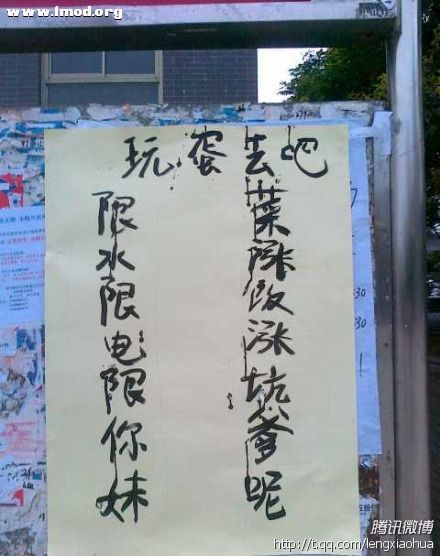 www.lmod.org
玩蛋去吧
菜涨饭涨坑爹呢
限水限电限你妹
腾讯微博
http://t.qq.com/lengxiaohua